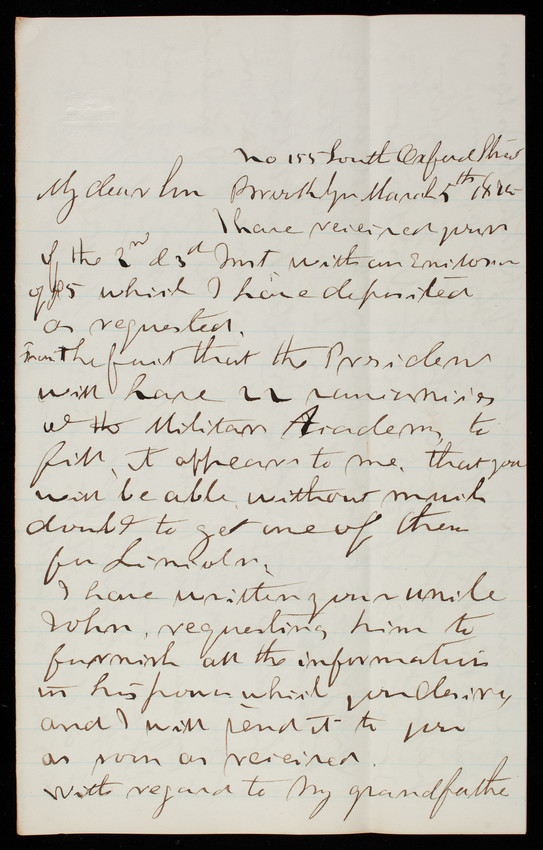 No 155 South Oxford Stree
My dear Son Brooklyn March 5th
I have received yours
of the 2nd & 3d Inst with an Enclosure
of $5 which I have deposited
as requested.
From the fact that the President
will have 22 vacancies
at the Military Academy to
fill, it appears to me, that you
will be able without much
doubt to get one of them
for Lincoln.
I have written your uncle
John, requesting him to
furnish all the information
in his power which you desire,
and I will send it to you
as soon as received.
With regard to my grandfathe